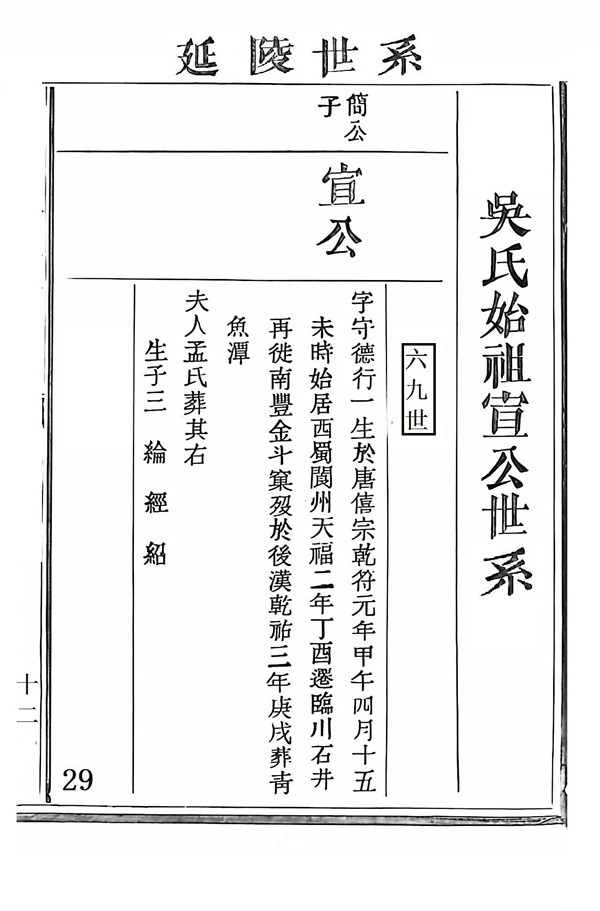 延陵世系
吳氏始祖宣公世系
六九世
簡公
子
宣公
字守德行一生於唐僖宗乾符元年甲午四月十五
未時始居西蜀閬州天福二年丁酉遷臨川石井
再徙南豐金斗窠歿於後漢乾祐三年庚戌葬青
魚潭
夫人孟氏葬其右
生子三 綸 經 紹
十二
29